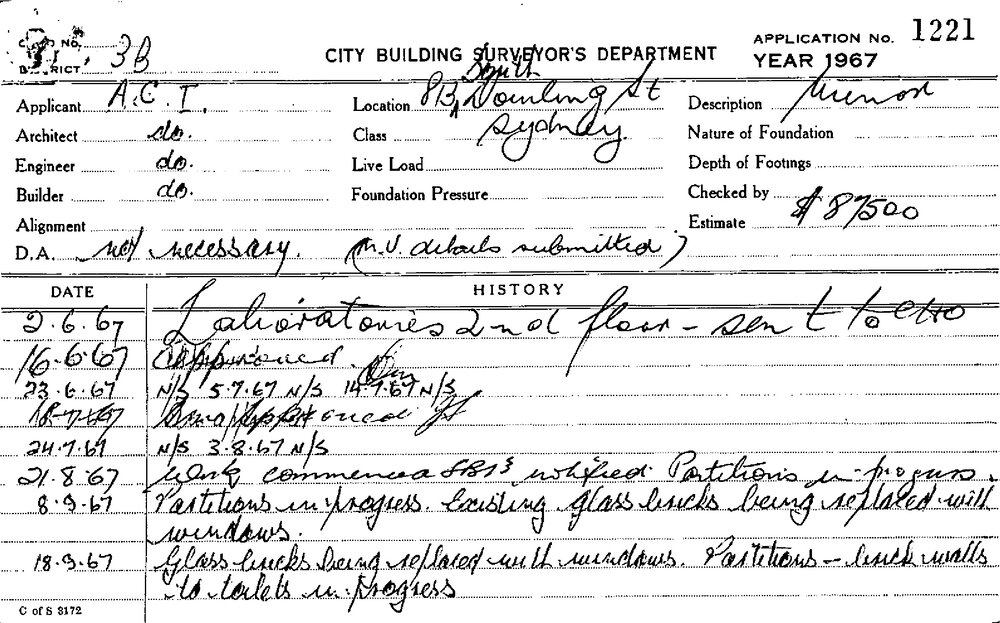 CARD NO.
DISTRICT. 3B
CITY BUILDING SURVEYOR'S DEPARTMENT
APPLICATION No. 1221
YEAR 1967
Applicant A.C.I.
Location 813 South Dowling St
Description Minor
Architect do.
Class Sydney
Nature of Foundation
Engineer do.
Live Load
Depth of Footings
Builder do.
Foundation Pressure
Checked by
Alignment
Estimate $ 87500
D.A. not necessary. (M.V. details submitted)
DATE HISTORY
2.6.67 Laboratories 2nd floor - sent to
16.6.67 Approved.
23.6.67 N/S 5.7.67 N/S 14.7.67 N/S
18.7.67
24.7.67 N/S 3.8.67 N/S
21.8.67 Work commenced notified. Partitions in progress.
8.9.67 Partitions in progress. Existing glass bricks being replaced with
windows.
18.9.67 Glass bricks being replaced with windows. Partitions - brick walls
to toilets in progress
C of S 3172